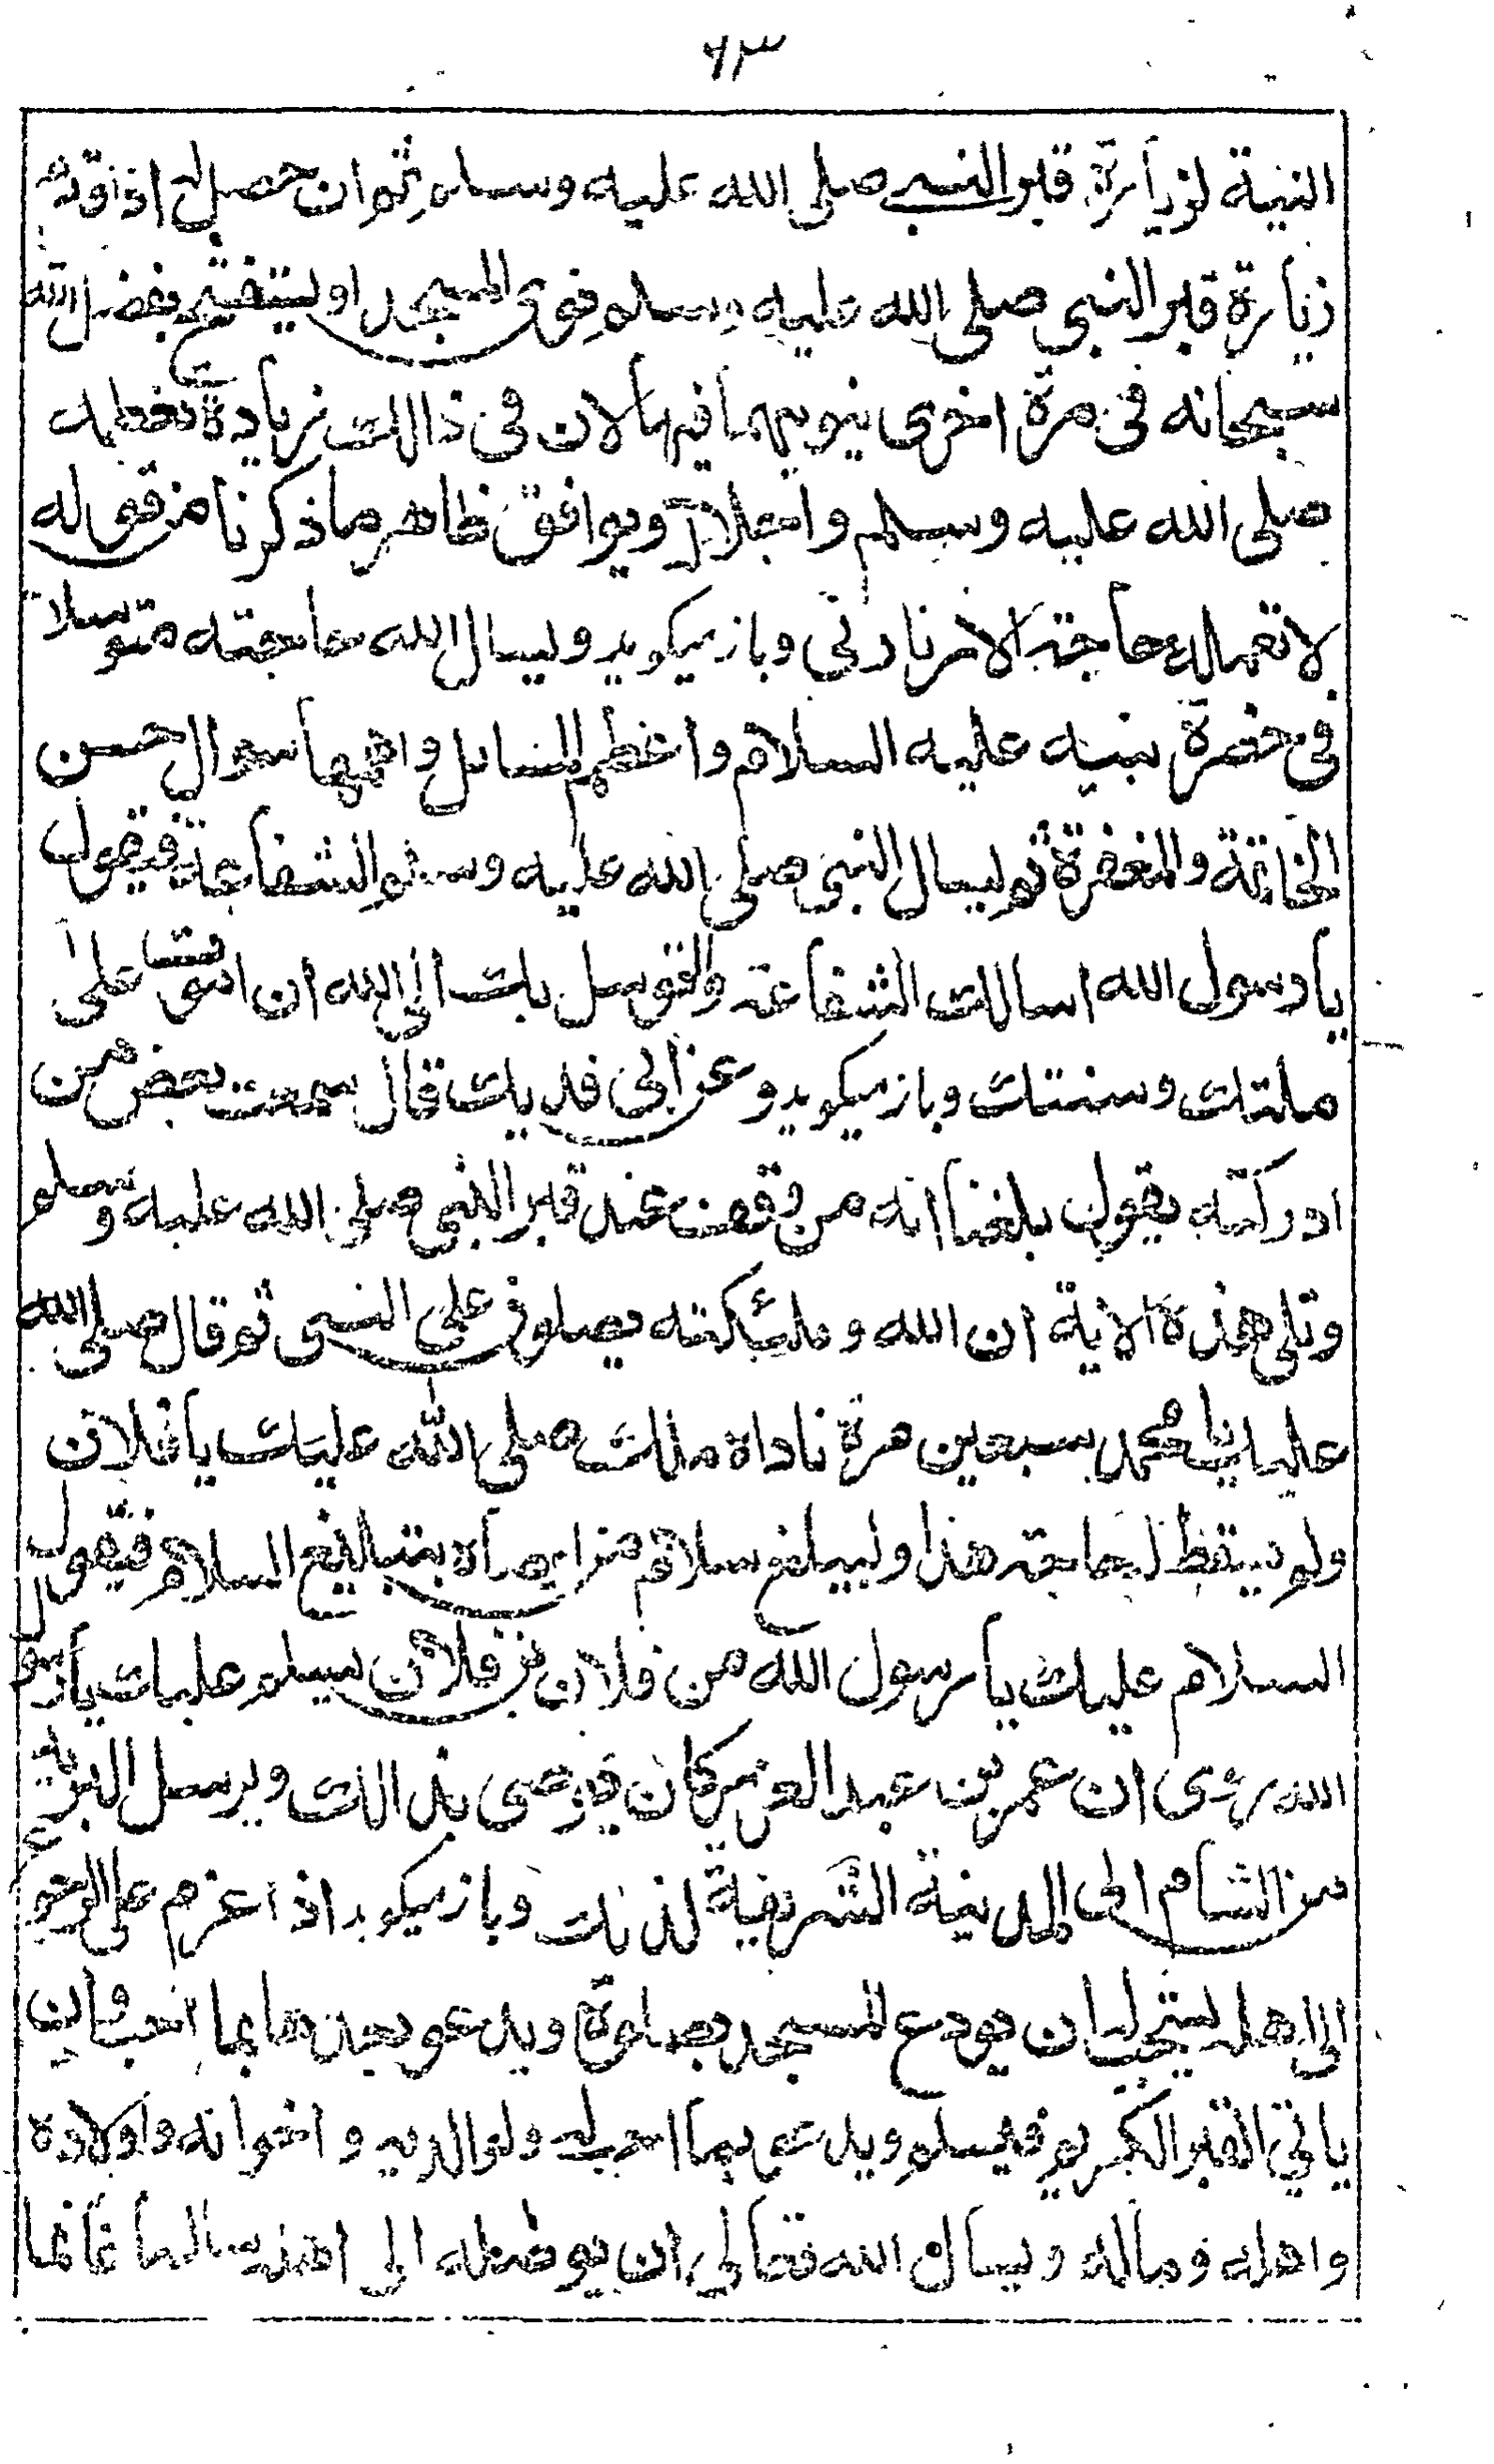 ٦٣
النية لزيارة قبر النبي صلى الله عليه وسلم ثم ان حصل له اذا قدم
زيارة قبر النبي صلى الله عليه وسلم نوى المسجد او ليستفتح بفضل الله
سبحانه فى مرة اخرى ينويهما فيها لان فى ذالك زيادة تعظيمه
صلى الله عليه وسلم واجلاله ويوافق ظاهر ما ذكرنا من قوله
لا تعمله حاجة الا زيارتى وباز ميكويد و ليسال الله حاجته متوسلا
فى حضرة نبيه عليه السلام واعظم المسائل واهمها سوال حسن
الخاتمة والمغفرة ثم ليسال النبى صلى الله عليه وسلم الشفاعة فيقول
يا رسول الله اسالك الشفاعة والتوسل بك الى الله ان اموت مسلما على
ملتك وسنتك وباز ميكويد و عن ابى فديك قال سمعت بعض من
ادركته يقول بلغنا انه من وقف عند قبر النبى صلى الله عليه وسلم
وتلى هذه الاية ان الله وملئكته يصلون على النبى ثم قال صلى الله
عليك يا محمد سبعين مرة ناداه ملك صلى الله عليك يا فلان
ولم يسقط له حاجة هذا وليبلغ سلام من اوصاه بتبليغ السلام فيقول
السلام عليك يا رسول الله من فلان بن فلان يسلم عليك يا رسول
الله روى ان عمر بن عبد العزيز كان يوصى بذالك ويرسل البريد
من الشام الى المدينة الشريفة لذلك وباز ميكويد اذا عزم على الرجوع
الى اهله يستحب ان يودع المسجد بصلوة ويدعو بعدها بما احب وان
ياتى القبر الكريم فيسلم ويدعو بما احب له ولوالديه واخوانه واولاده
واهله وماله ويسال الله تعالى ان يوصله الى اهله سالما غانما